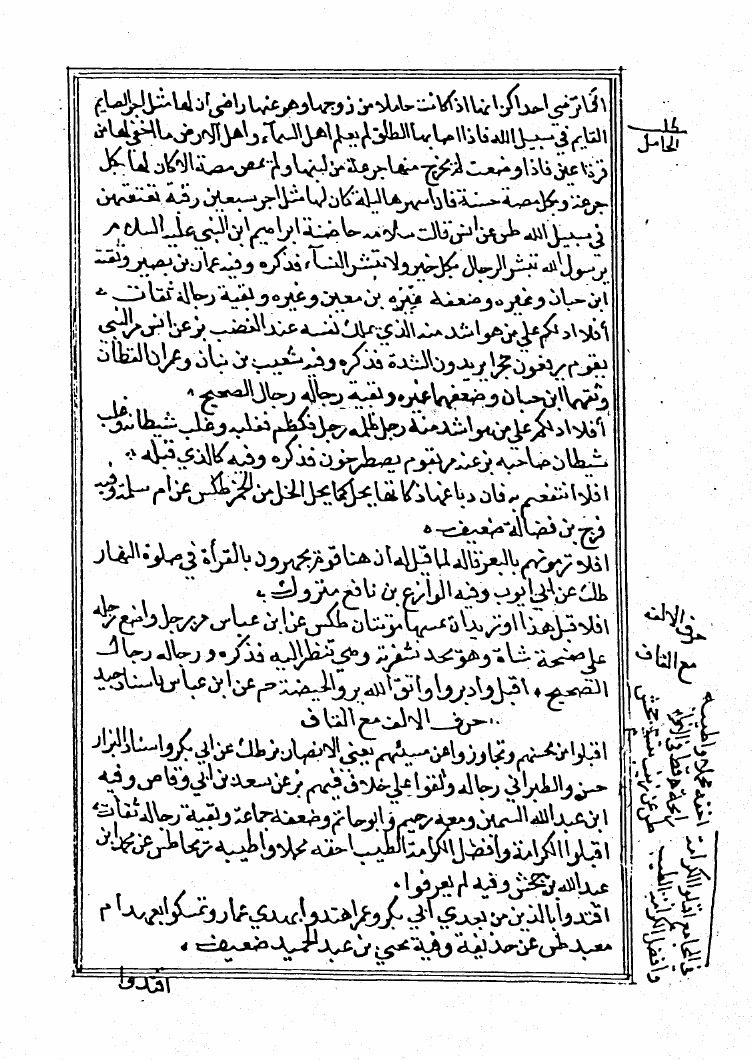 الحاترضي احداكن انها اذا كانت حاملا من زوجها وهو عنها راضي ان لها مثل اجر الصايم
القايم في سبيل الله فاذا اصابها الطلق لم يعلم اهل السمآء واهل الارض ما اخفي لها من
قرة اعين فاذا وضعت لم يخرج منها جرعة من لبنها ولم يمص مصة الا كان لها بكل
جرعة وبكل مصة حسنة فاذا اسهرها ليلة كان لها مثل اجر سبعين رقبة تعتقهن
في سبيل الله طس عن انس قالت سلامه حاضنة ابراهيم ابن النبي عليه السلام
يرسول الله تبشر الرجال بكل خير ولا تبشر النسآء فذكره وفيه عمار بن نصير وثقه
ابن حبان وغيره وضعفه غيره بن معين وغيره وبقية رجاله ثقات
أفلا ادلكم علي من هو اشد منه الذي يملك نفسه عند الغضب بز عن انس مر النبي
بقوم يرفعون حجرا يريدون الشدة فذكره وفيه شعيب بن بيان وعمران القطان
وثقهما ابن حبان وضعفهما غيره وبقية رجاله رجال الصحيح
أفلا ادلكم علي من هو اشد منه رجل ظلمه رجل فكظم فغلبه وغلب شيطانه وغلب
شيطان صاحبه بز عنه مر بقوم يصطرخون فذكره وفيه كالذي قبله
افلا انتفعتم به فان دباغها ذكاتها يحل كما يحل الخل من الخمر طكس عن ام سلمة وفيه
فرج بن فضالة ضعيف
افلا ترمونهم بالبعر قاله لما قيل له أن هنا قوم يجهرون بالقرأة في صلوة النهار
طك عن ابي ايوب وفيه الوازع بن نافع متروك
افلا قبل هذا او تريد ان تميتها موتتان طكس عن ابن عباس مر برجل واضع رجله
علي صفحة شاة وهو يحد شفرته وهي تنظر اليه فذكره ورجاله رجال
الصحيح اقبل وادبر واتق الدبر والحيضة حم عن ابن عباس باسناد جيد
حرف الالف مع القاف
اقبلوا من محسنهم وتجاوزوا عن مسيئهم يعني الانصار بز طك عن ابي بكر واسناد البزار
حسن والطبراني رجاله وثقوا علي خلاف فيهم بز عن سعد بن ابي وقاص وفيه
ابن عبد الله السمين وثقه رحيم وابو حاتم وضعفه جماعة وبقية رجاله ثقات
اقبلوا الكرامة وافضل الكرامة الطيب اخفه محملا واطيبه ريحا طس عن محمد ابن
عبد الله بن جحش وفيه لم يعرفوا
اقتدوا بالذين من بعدي ابي بكر وعمر اهتدوا بهدي عمار وتمسكوا بعهد ام
معبد طس عن حذيفة وفيه يحيي بن عبد الحميد ضعيف
اقتدوا
الحامل
حرف الالف
مع القاف
في الجامع اقبلوا الكرامة
وافضل الكرامة الطيب
اخفه محملا واطيبه